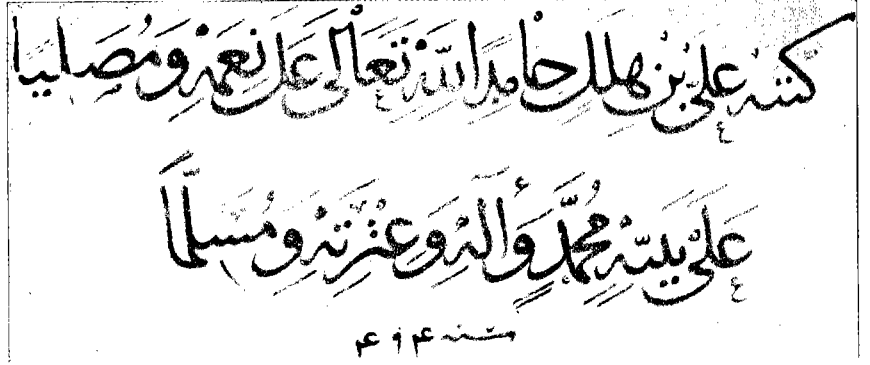 كتبه عَلي بن هِلَلِ حامِدًا للهِ تَعَالَى عَلَى نِعَمِهِ وَمُصَلِّيًا
عَلَى نَبيّهِ مُحَمَّدٍ وَآلِهِ وَعِتْرَتِهِ وَمُسَلِّمًا
سنه